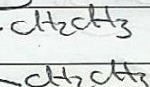 CH2CH3
CH2CH3